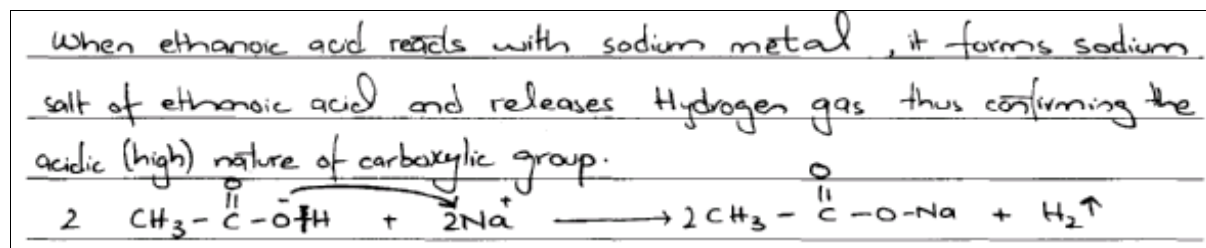 when ethanoic acid reacts with sodium metal, it forms sodium
salt of ethanoic acid and releases Hydrogen gas thus confirming the
acidic (high) nature of carboxylic group.
O O
2 CH₃ - C - O⁻ H + 2Na⁺ ⟶ 2 CH₃ - C - O - Na + H₂↑